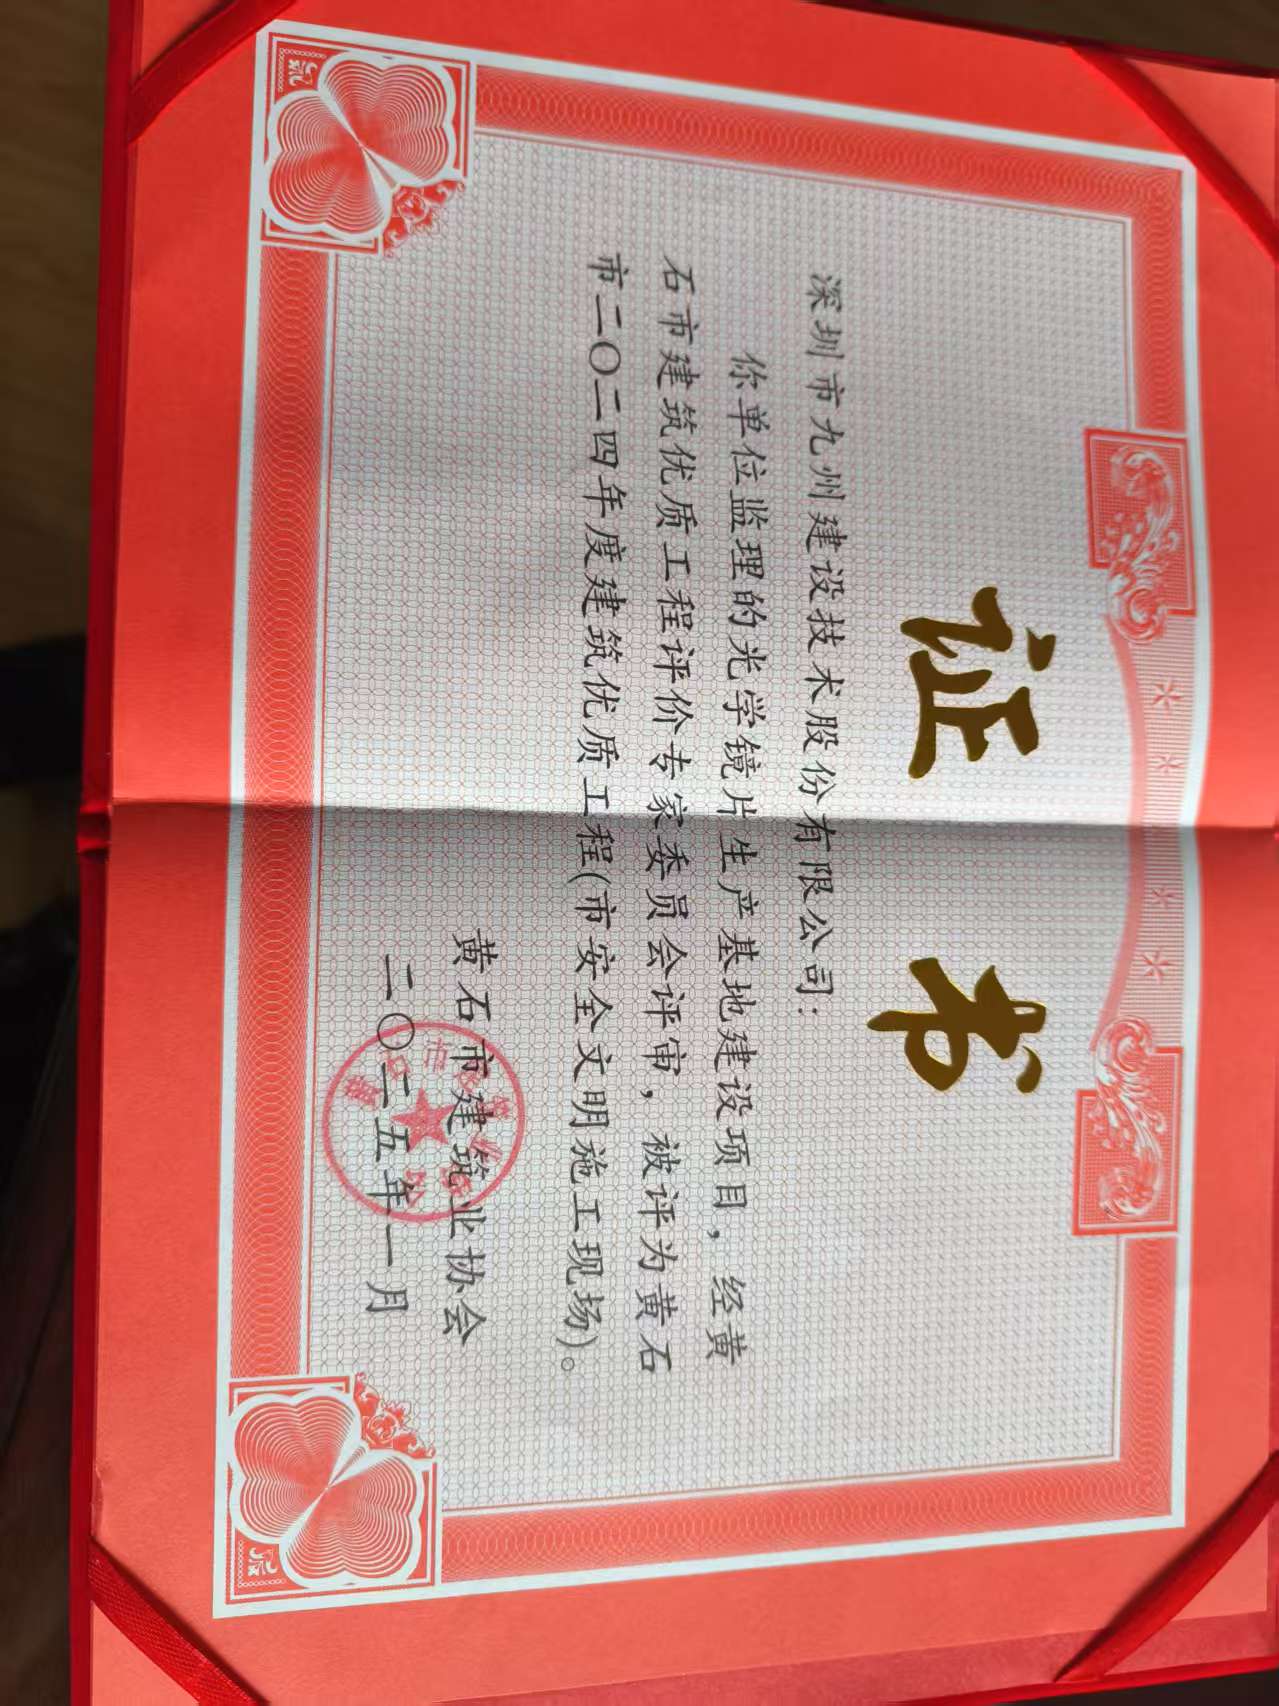 证书
深圳市九州建设技术股份有限公司：
你单位监理的光学镜片生产基地建设项目，经黄
石市建筑优质工程评价专家委员会评审，被评为黄石
市二〇二四年度建筑优质工程(市安全文明施工现场)。
黄石市建筑业协会
二〇二五年一月